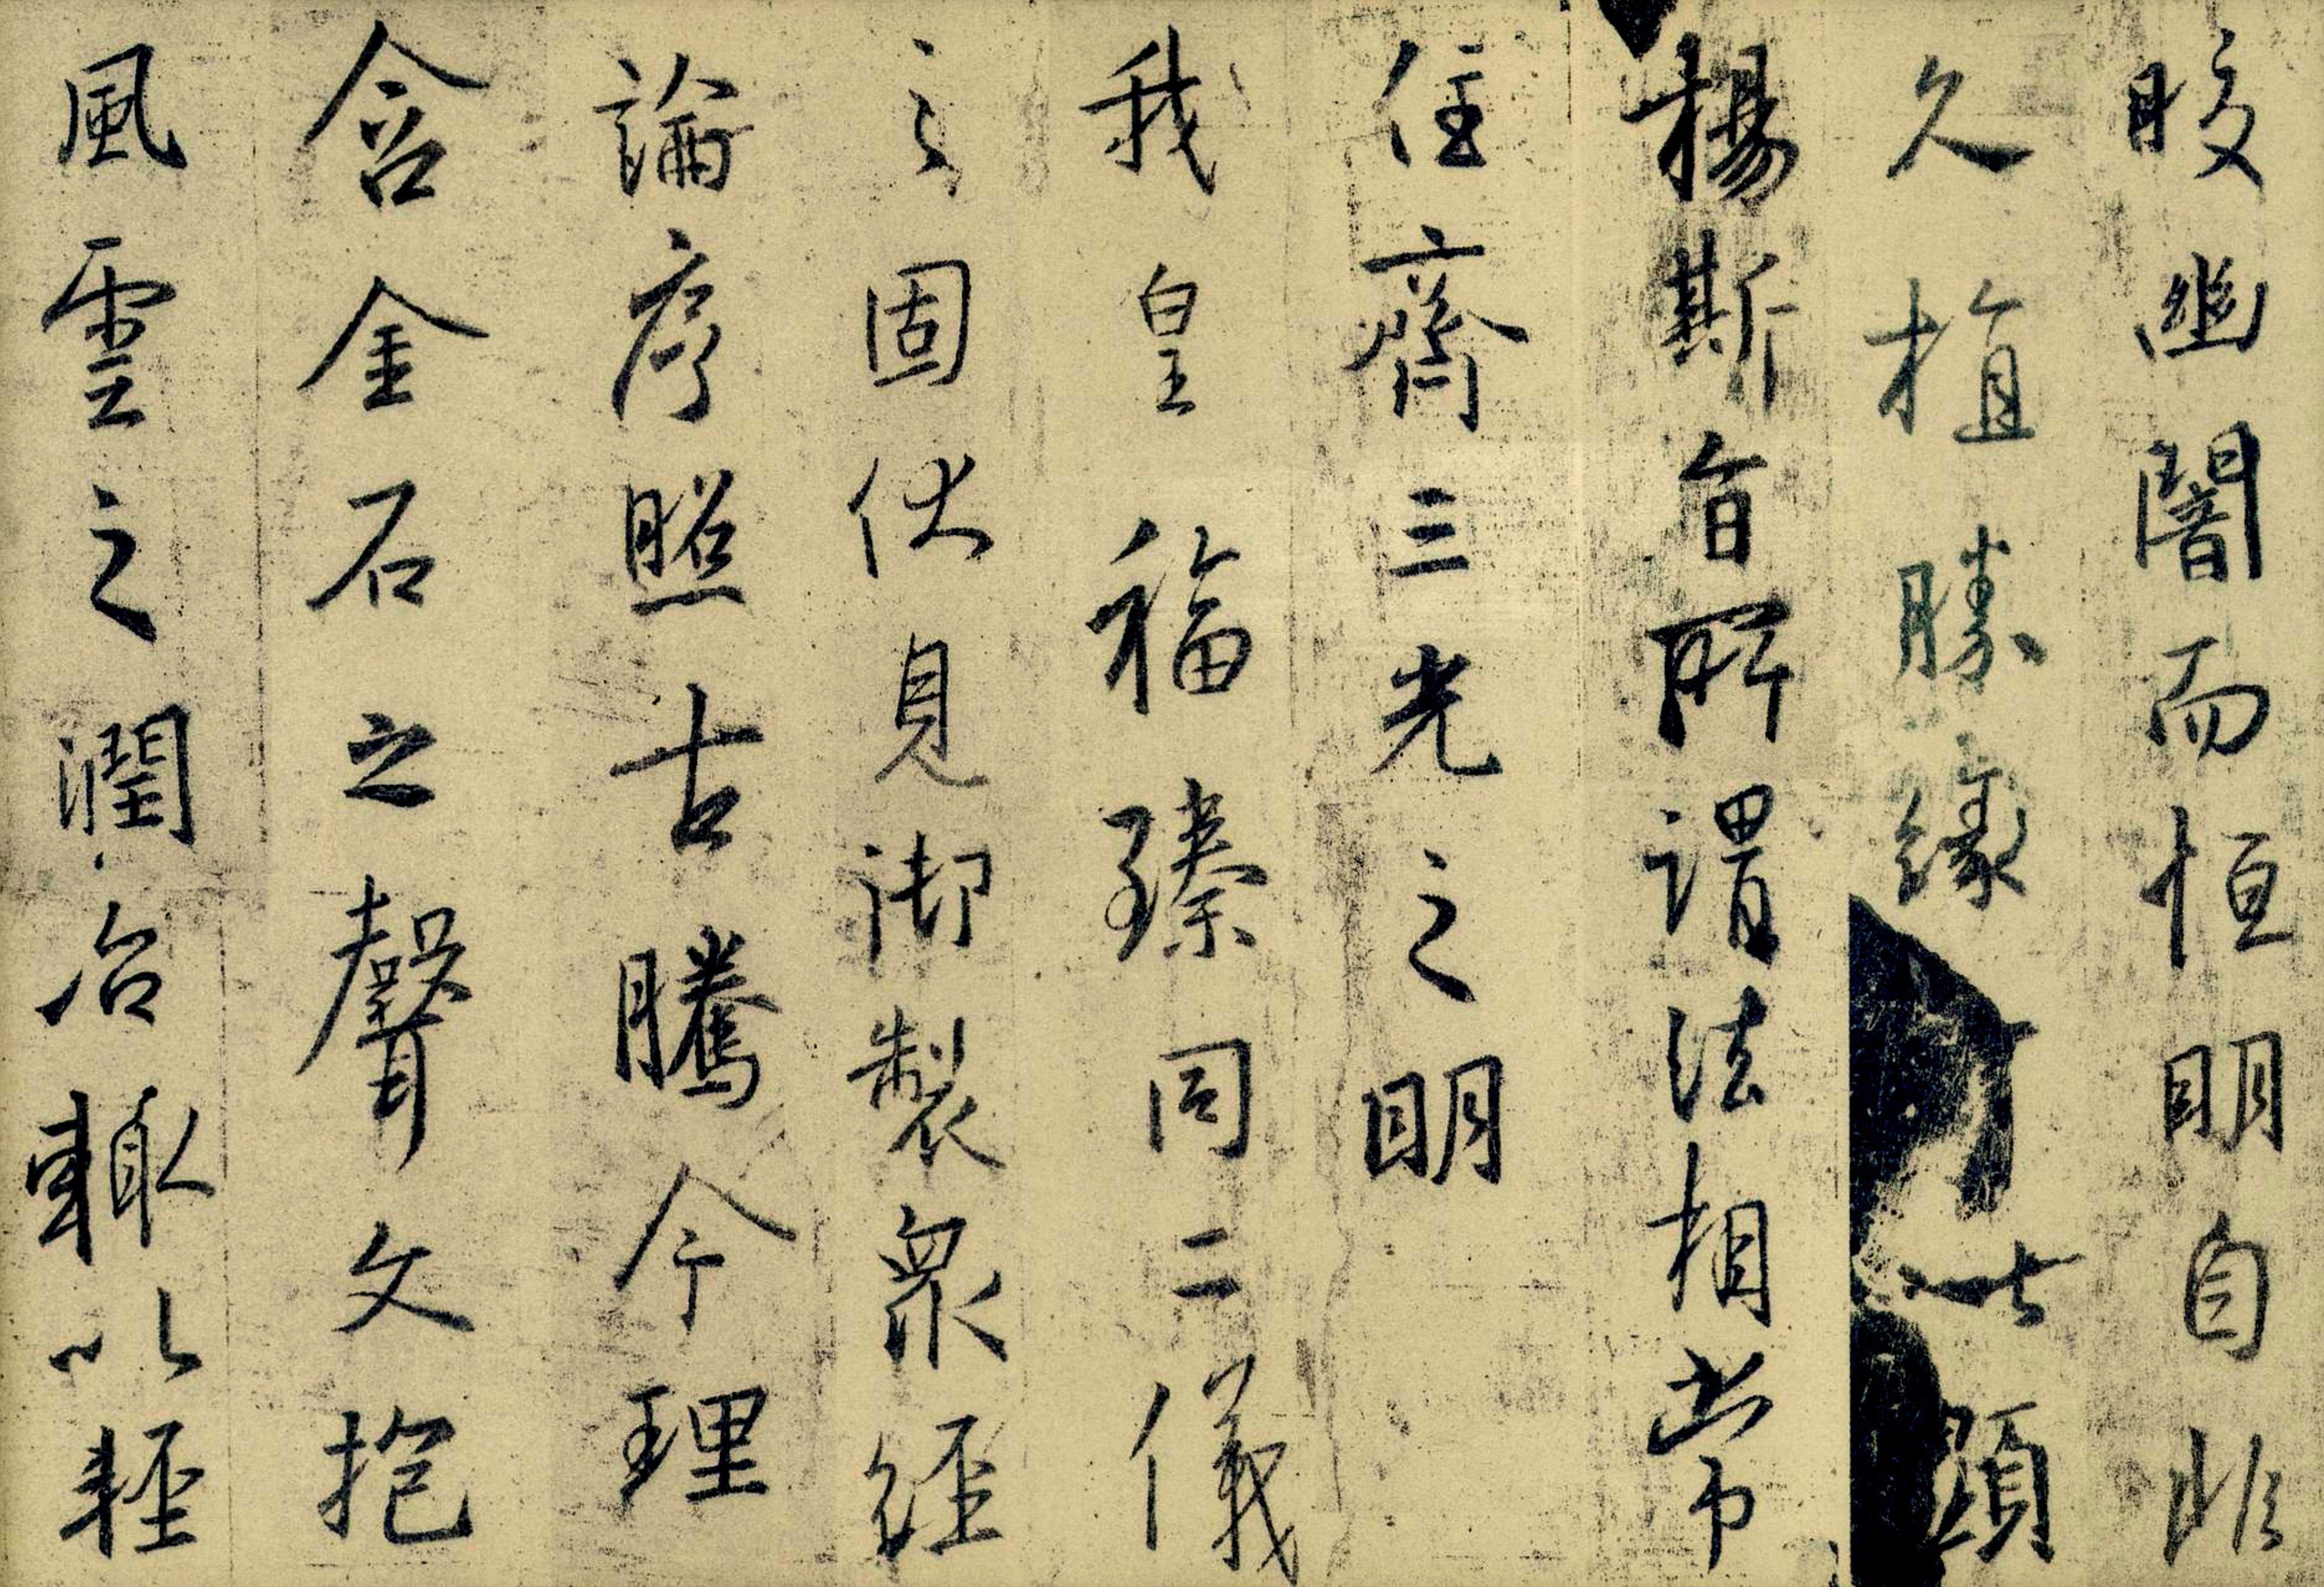 晈幽闇而恒明自非
久植勝緣何以顯
揚斯旨所謂法相常
住齊三光之明
我皇福臻同二儀
之固伏見御製眾經
論序照古騰今理
含金石之聲文抱
風雲之潤治輒以輕